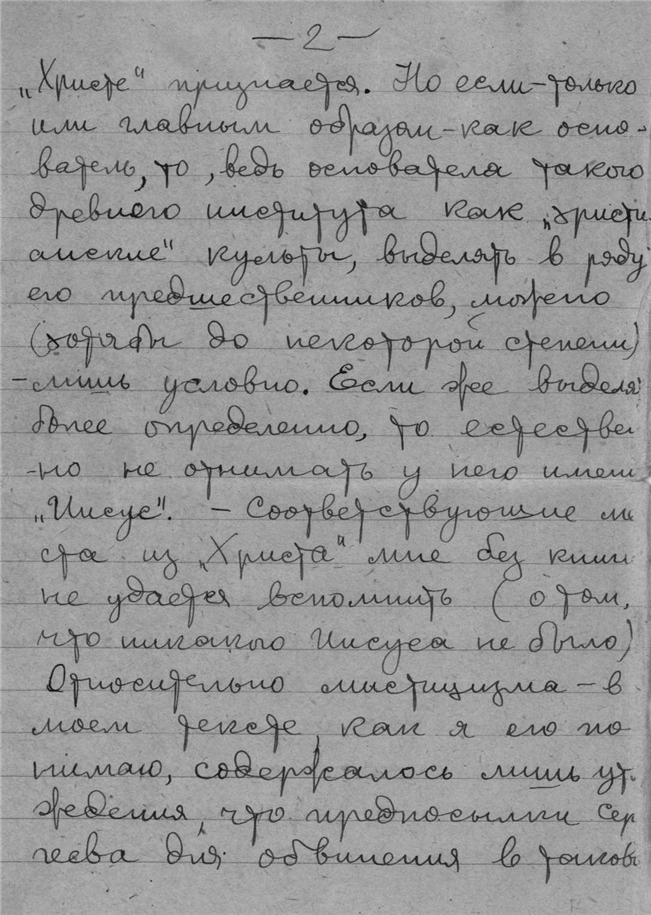 — 2 —
„Христе“ признается. Но если – только
или главным образом – как осно-
ватель, то, ведь основателя такого
древнего института как „христи
анские“ культы, выделять в ряду
его предшественников, можно
(хотя бы до некоторой степени)
– лишь условно. Если же выделя
более определенно, то естествен
-но не отнимать у него имени
„Иисус“. – Соответствующие ме
ста из „Христа“ мне без книги
не удается вспомнить (о том,
что никакого Иисуса не было)
Относительно мистицизма – в
моем тексте, как я его по
нимаю, содержалось лишь ут.
ждения, что предпосылки Сер
геева для обвинения в таков